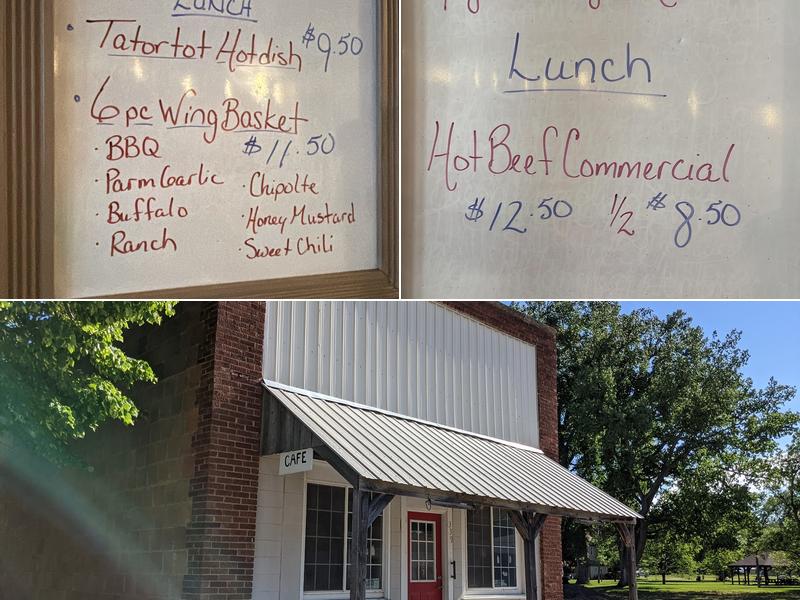 LUNCH
Tatortot Hotdish $9.50
6pc Wing Basket
$11.50
· BBQ
· Parm Garlic
· Buffalo
· Ranch
· Chipolte
· Honey Mustard
· Sweet Chili
Lunch
Hot Beef Commercial
$12.50 1/2 $8.50
CAFE